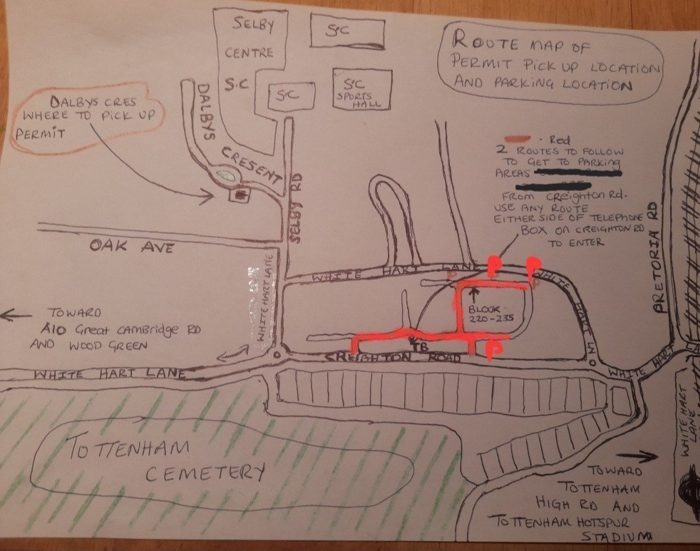 SELBY
CENTRE
S.C
S.C
S.C
S.C
SPORTS
HALL
ROUTE MAP OF
PERMIT PICK UP LOCATION
AND PARKING LOCATION
DALBYS CRES
WHERE TO PICK UP
PERMIT
DALBYS
CRESENT
SELBY RD
- Red
2 ROUTES TO FOLLOW
TO GET TO PARKING
AREAS
FROM CREIGHTON Rd.
USE ANY ROUTE
EITHER SIDE OF TELEPHONE
BOX ON CREIGHTON RD
TO ENTER
PRETORIA RD
OAK AVE
WHITE HART LANE
WHITE HART LANE
P
P
P
P
WHITE HART LN
BLOCK
220-235
TB
P
CREIGHTON ROAD
TOWARD
A10 Great CAMBRIDGE RD
AND WOOD GREEN
WHITE HART LANE
WHITE HART
WHITE HART
LANE
TOTTENHAM
CEMETERY
TOWARD
TOTTENHAM
HIGH RD AND
TOTTENHAM HOTSPUR
STADIUM